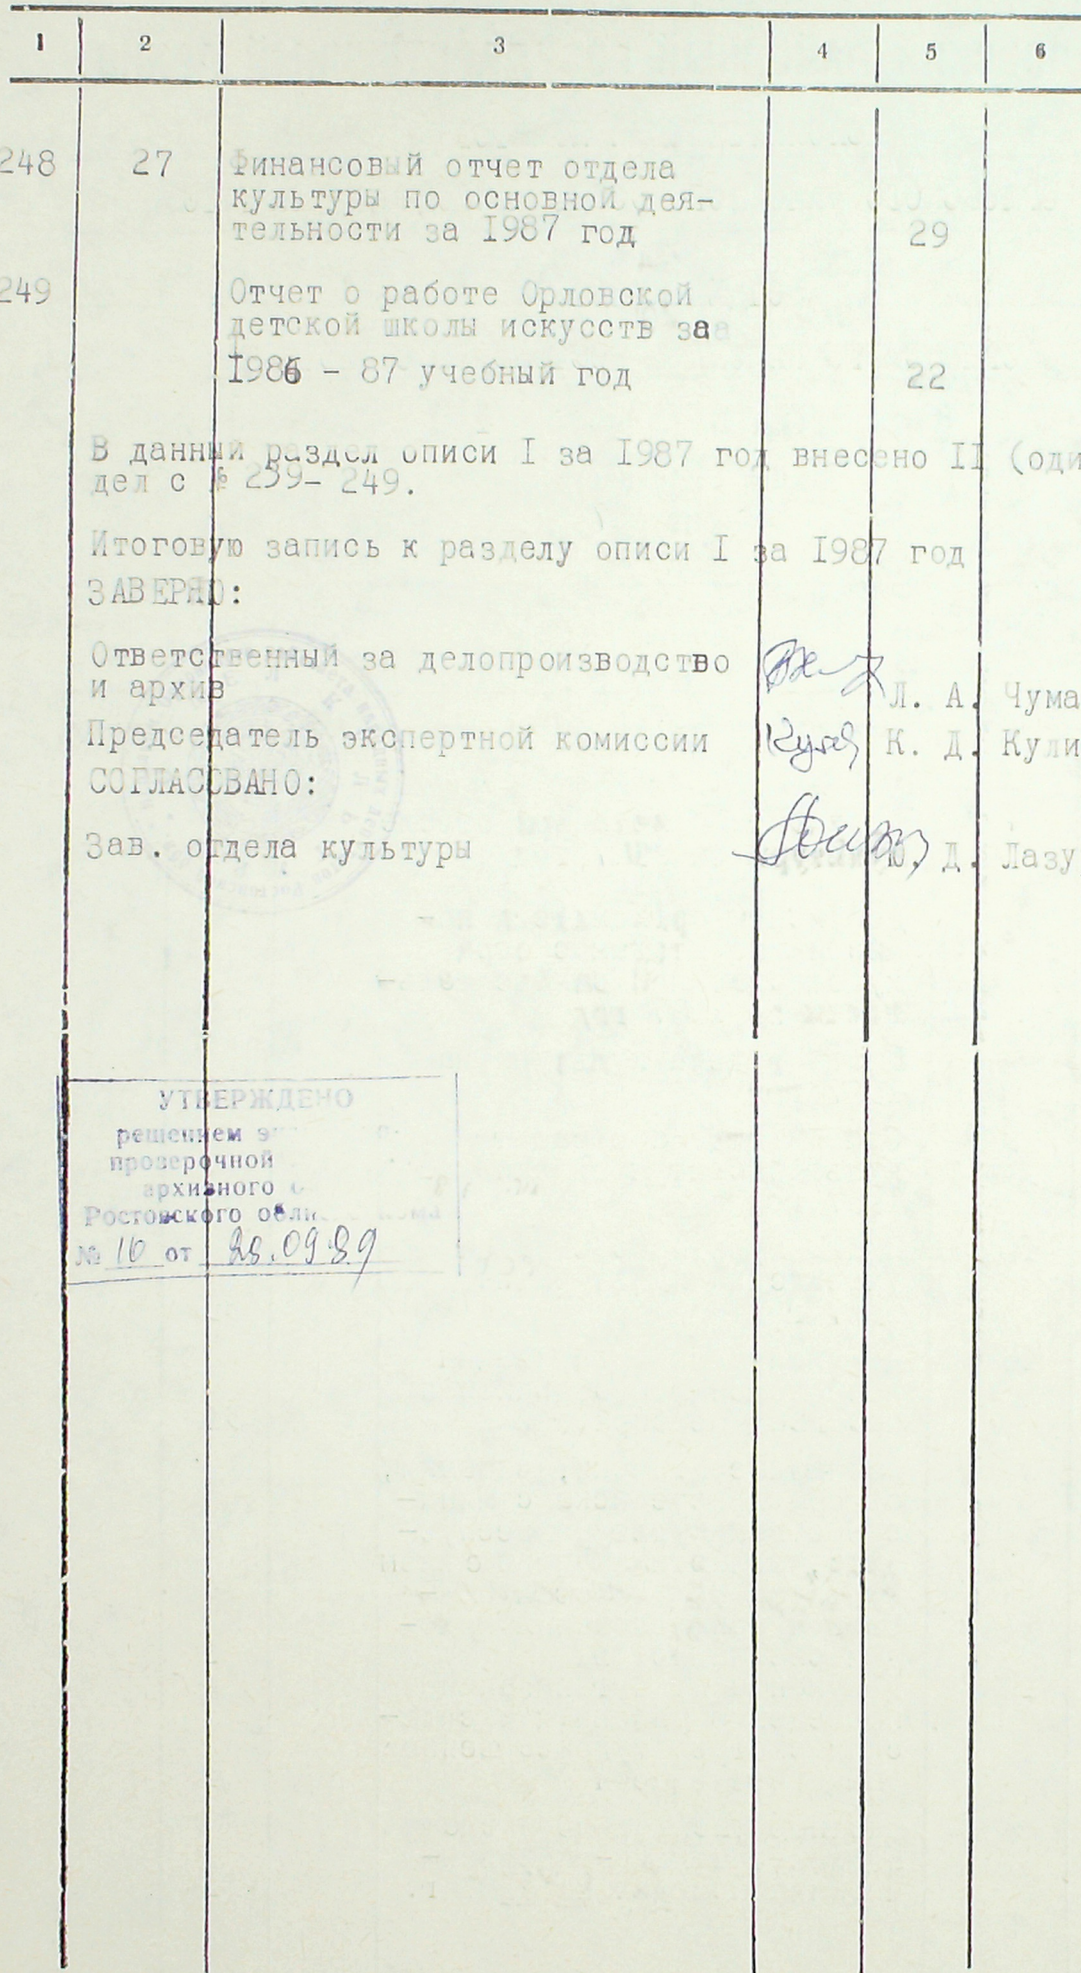 1 2 3 4 5 6
248 27 Финансовый отчет отдела
культуры по основной дея-
тельности за I987 год 29
249 Отчет о работе Орловской
детской школы искусств за
I986 - 87 учебный год 22
В данный раздел описи I за I987 год внесено II (оди
дел с № 239- 249.
Итоговую запись к разделу описи I за I987 год
ЗАВЕРЯЮ:
Ответственный за делопроизводство
и архив Л. А. Чума
Председатель экспертной комиссии К. Д. Кули
СОГЛАСОВАНО:
Зав. отдела культуры Ю. Д. Лазу
УТВЕРЖДЕНО
решением
проверочной
архивного
Ростовского обл
№ 10 от 28.09.89